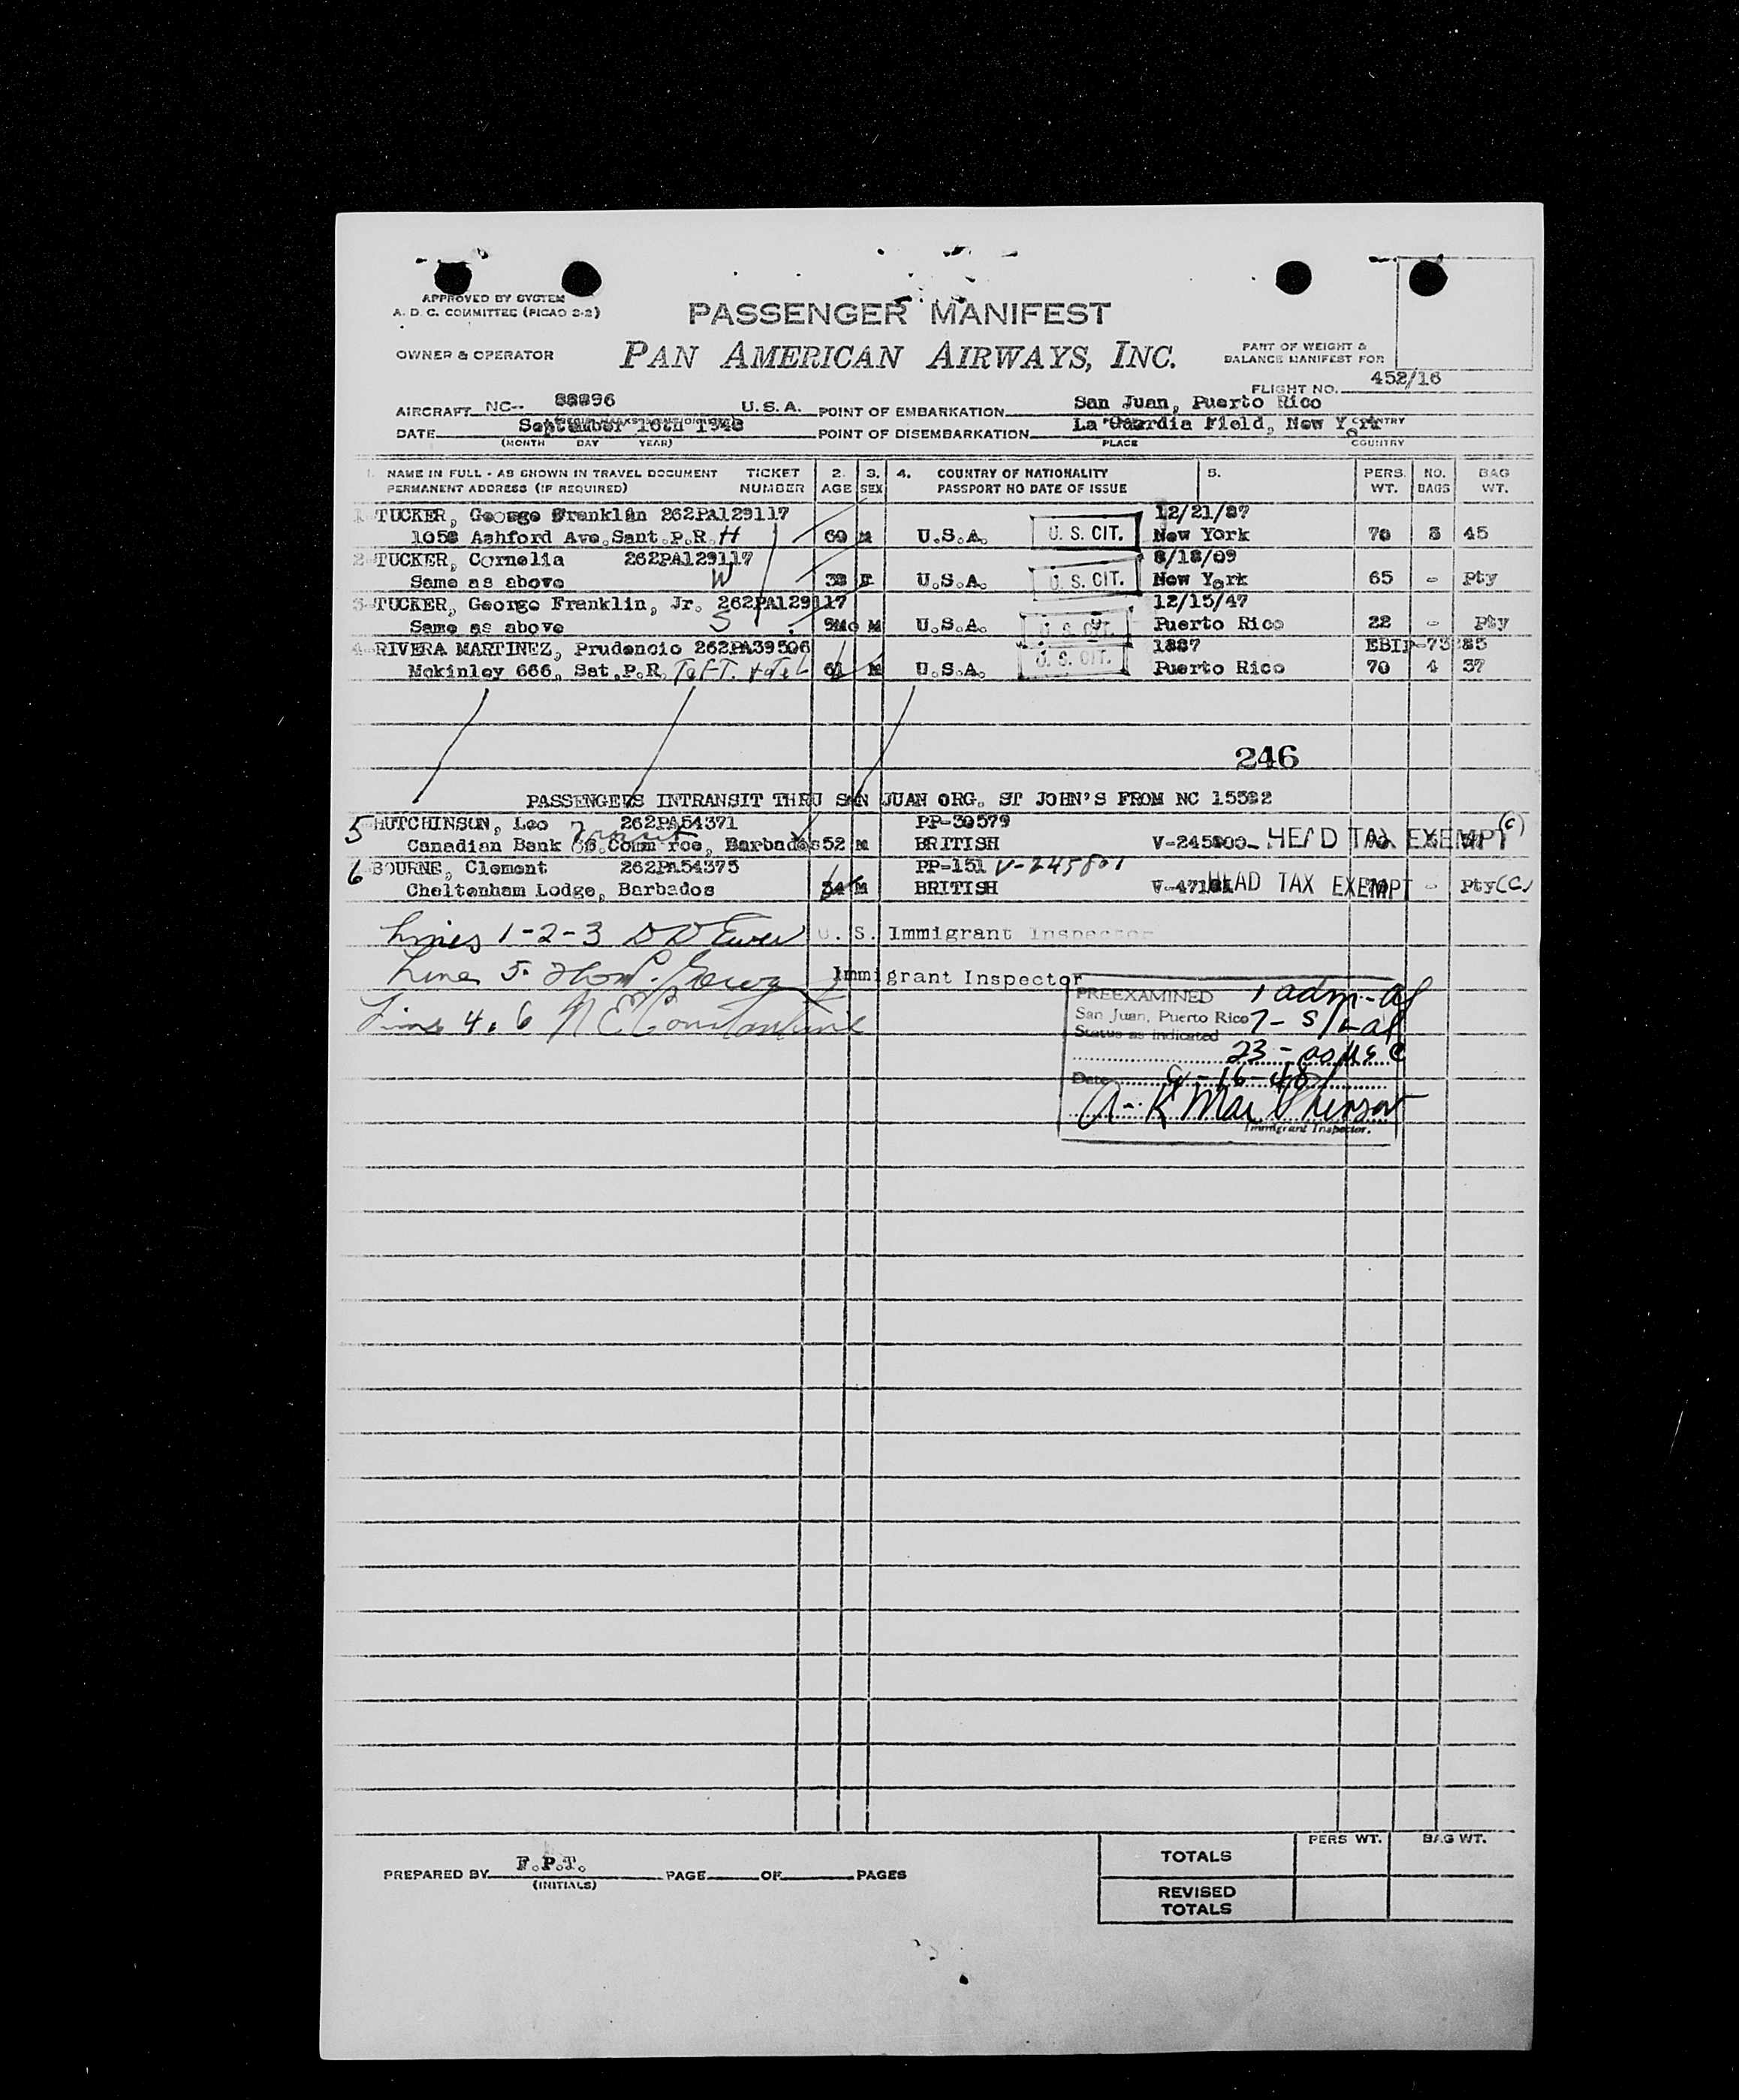 APPROVED BY SYSTEM
A. D. C. COMMITTEE (PICAO 2-2)
PASSENGER MANIFEST
OWNER & OPERATOR
PAN AMERICAN AIRWAYS, INC.
PART OF WEIGHT &
BALANCE MANIFEST FOR
FLIGHT NO. 452/16
AIRCRAFT NC-- 88896 U.S.A. POINT OF EMBARKATION San Juan, Puerto Rico
DATE September 16th 1948 POINT OF DISEMBARKATION La Guardia Field, New York
(MONTH DAY YEAR) PLACE COUNTRY
1. NAME IN FULL - AS SHOWN IN TRAVEL DOCUMENT TICKET 2. 3. 4. COUNTRY OF NATIONALITY 5. PERS. NO. BAG
PERMANENT ADDRESS (IF REQUIRED) NUMBER AGE SEX PASSPORT NO DATE OF ISSUE WT. BAGS WT.
1 TUCKER, George Franklin 262PA129117 12/21/87
1058 Ashford Ave. Sant. P.R. H 60 M U.S.A. U. S. CIT. New York 70 3 45
2 TUCKER, Cornelia 262PA129117 8/18/09
Same as above W 38 F U.S.A. U. S. CIT. New York 65 - Pty
3 TUCKER, George Franklin, Jr. 262PA129117 12/15/47
Same as above S 9Mo M U.S.A. U. S. CIT. Puerto Rico 22 - Pty
4 RIVERA MARTINEZ, Prudencio 262PA39506 1887 EBIP-73285
Mckinley 666, Sat. P.R. Taft. Hotel 61 M U.S.A. U. S. CIT. Puerto Rico 70 4 37
246
PASSENGERS INTRANSIT THRU SAN JUAN ORG. ST JOHN'S FROM NC 15582
5 HUTCHINSON, Leo 262PA54371 PP-30579 (C)
Canadian Bank Barbados 52 M BRITISH HEAD TAX EXEMPT
6 BOURNE, Clement 262PA54375 PP-151 V-245801
Cheltenham Lodge, Barbados 34 M BRITISH HEAD TAX EXEMPT - Pty (C)
Lines 1-2-3 U. S. Immigrant Inspector
Line 5. Immigrant Inspector
Lines 4. 6
PREEXAMINED 1 adm-
San Juan, Puerto Rico
Status as indicated
23 -
Date 9-16-48
Immigrant Inspector.
PREPARED BY F.P.T. PAGE OF PAGES
(INITIALS)
PERS WT. BAG WT.
TOTALS
REVISED
TOTALS